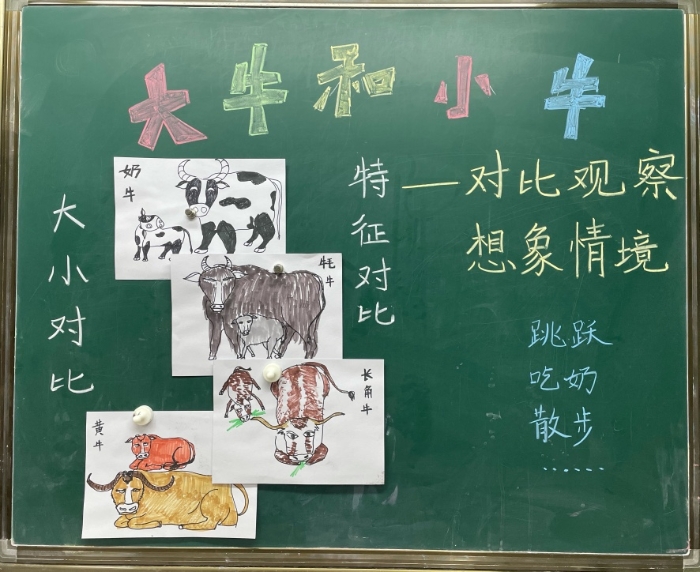 大牛和小牛
——对比观察
想象情境
大小对比
特征对比
奶牛
牦牛
长角牛
黄牛
跳跃
吃奶
散步
……